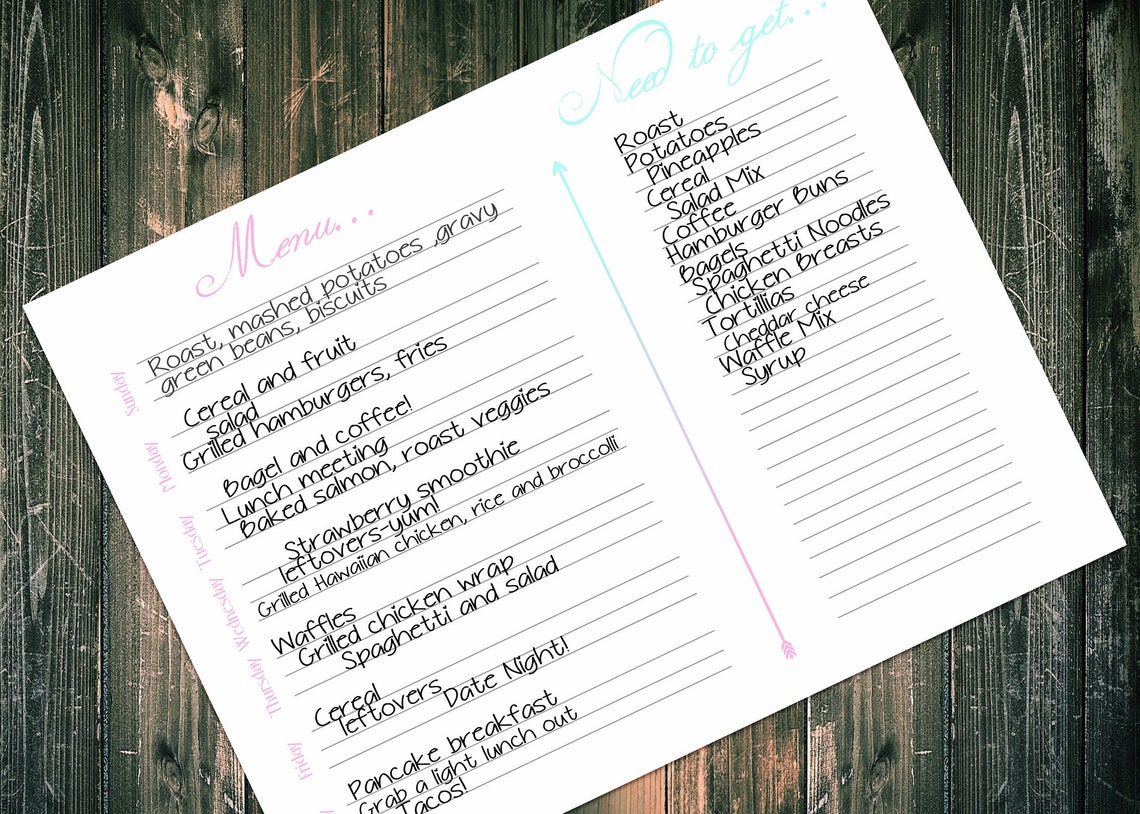 Menu...
Sunday
Roast, mashed potatoes ,gravy
green beans, biscuits
Monday
Cereal and fruit
salad
Grilled hamburgers, fries
Tuesday
Bagel and coffee!
Lunch meeting
Baked salmon, roast veggies
Wednesday
Strawberry smoothie
leftovers-yum!
Grilled Hawaiian chicken, rice and broccolli
Thursday
Waffles
Grilled chicken wrap
Spaghetti and salad
Friday
Cereal
leftovers
Date Night!
Pancake breakfast
Grab a light lunch out
Tacos!
Need to get...
Roast
Potatoes
Pineapples
Cereal
Salad Mix
Coffee
Hamburger Buns
Bagels
Spaghetti Noodles
Chicken Breasts
Tortillias
Cheddar cheese
Waffle Mix
Syrup